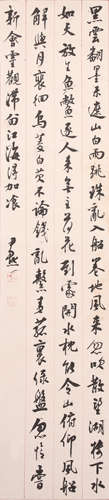 黑雲翻墨未遮山白雨跳珠亂入船卷地風來忽吹散望湖樓下水
如天放生魚鱉逐人來無主荷花到處開水枕能令山俯仰風船
解與月裴回烏菱白芡不論錢亂繫青菰裹綠盤忽憶嘗
新會靈觀滯留江海得加餐
尹默